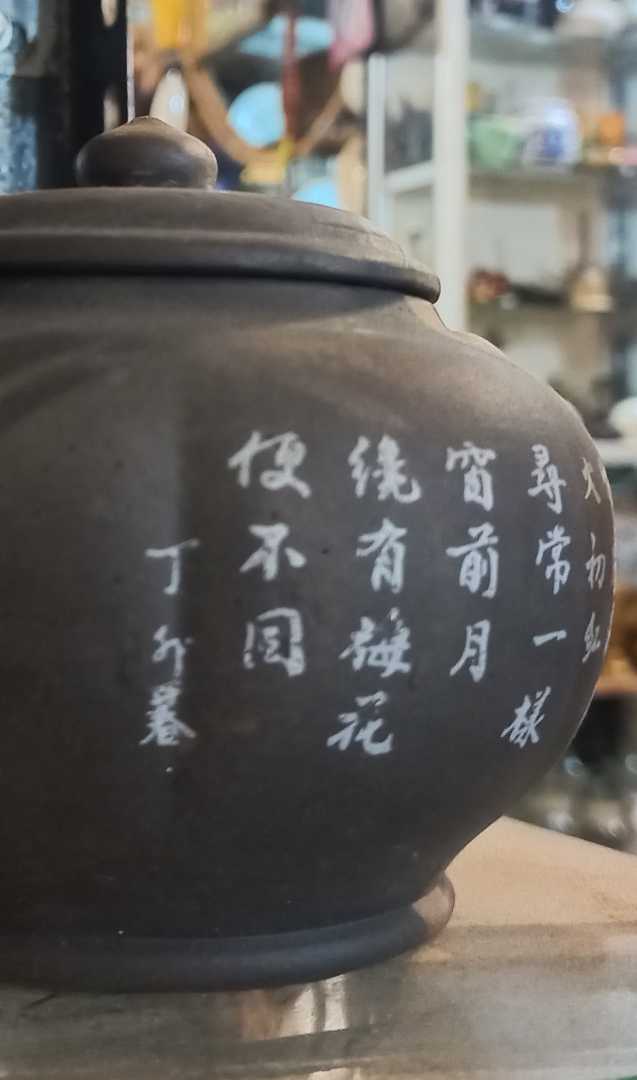 火初红
尋常一樣
窗前月
纔有梅花
便不同
丁卯春